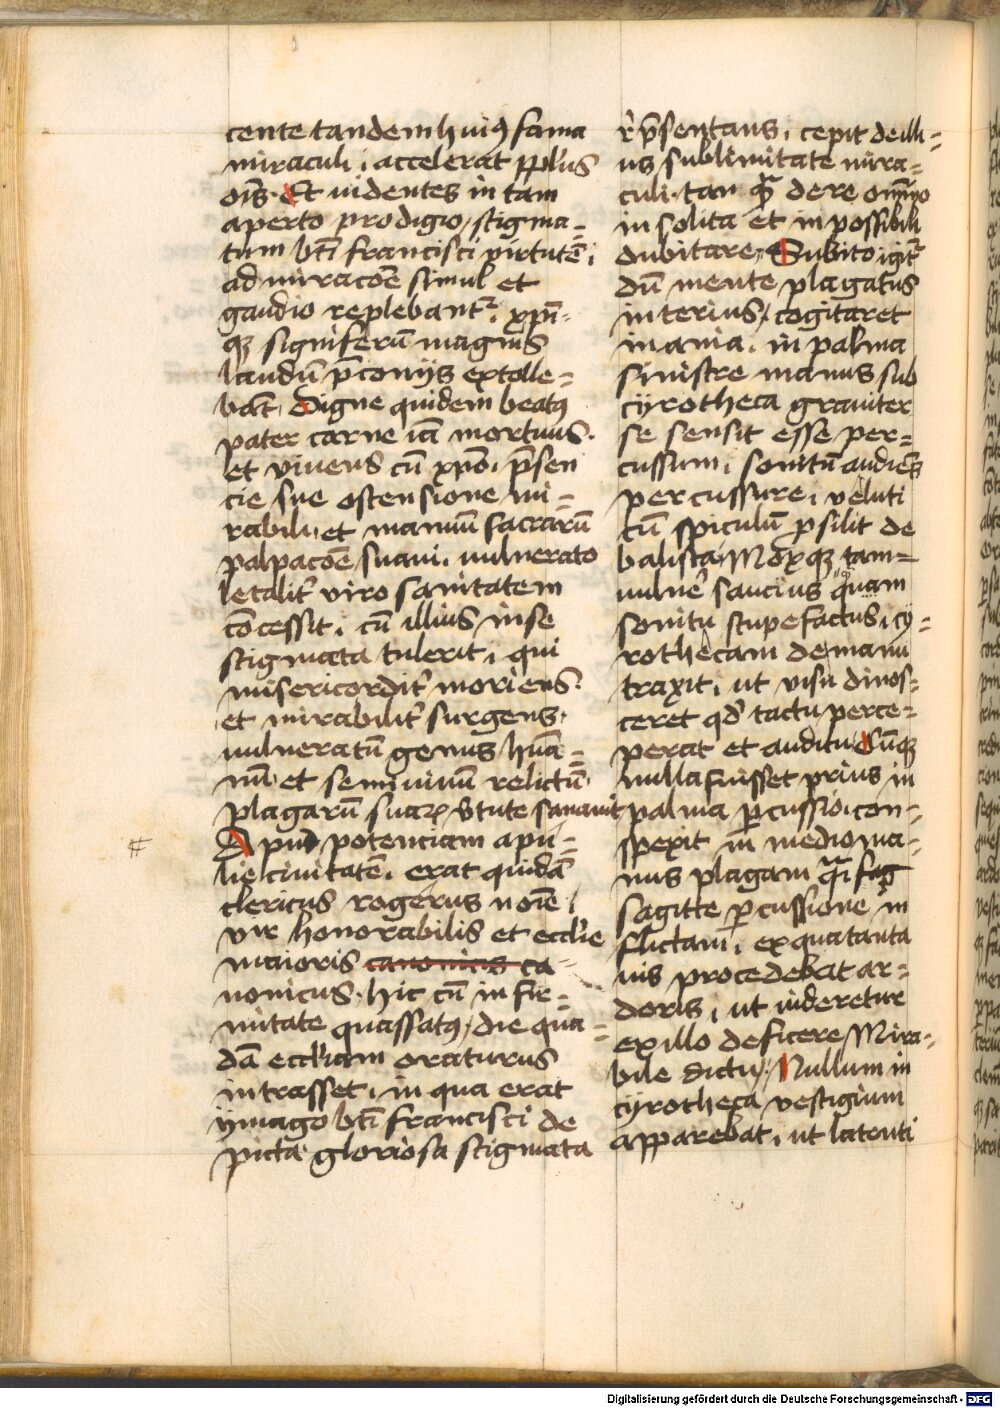 cente tandem huiꝰ fama
miraculi, accelerat ppl'us
oīs. Et uidentes in tam
aperto prodigio, stigma=
tum bt̄i francisci virtutē,
admiracōe simul et
gaudio replebant᷑, xp̄i-
qȝ signiferū magnis
laudū p̄conijs extolle=
bāt, Digne quidem beatꝰ
pater carne iā mortuus.
et viuens cū xpō, p̄sen
cie sue ostensione mi=
rabili, et manuū sacrarū
palpacōe suaui, uulnerato
letalit᷑ viro sanitatem
cōcessit, cū illius in se
stigmata tulerit, qui
misericordit᷑ moriens.
et mirabilit᷑ surgens,
uulneratū genus hūa=
nū, et semiuiuū relictū,
plagarū suaꝝ v̄tute sanauit
Apud potenciam apu=
lie ciuitatē, erat quidā
clericus rogerus noīe,
vir honorabilis et eccl'ie
maioris canonicus ca-
nonicus. hic cū infir=
mitate quassatꝰ, die qua=
dā eccl'iam oraturus
intrasset, in qua erat
ijmago bt̄i francisci de
picta gloriosa stigmata
rep̄sentans, cepit de illi=
us sublimitate mira=
culi, tan qᷓ de re om̄ino
insolita et inpossibili
dubitare, Subito igit᷑
dū mente plagatus
interius, cogitaret
inania, in palma
sinistre manus sub
cyrotheca grauiter
se sensit esse per=
cussum, sonitū audiens
percussure, veluti
cū spiculū ꝓsilit de
balista, Moxqȝ tam=
uulne᷑ saucius quam
sonitu stupefactus, cy=
rothecam de manu
traxit, ut visu dinos=
ceret qd' tactu perce=
perat et auditu, Cūqȝ
nulla fuisset prius in
palma ꝑcussio, con-
spexit in medio ma-
nus plagam qᷓi sag
sagitte ꝑcussione in
flictam, ex qua tanta
uis procedebat ar=
doris, ut uideretur
ex illo deficere, Mira-
bile dictu, Nullum in
cyrotheca vestigium
apparebat, ut latenti
Digitalisierung gefördert durch die Deutsche Forschungsgemeinschaft - DFG